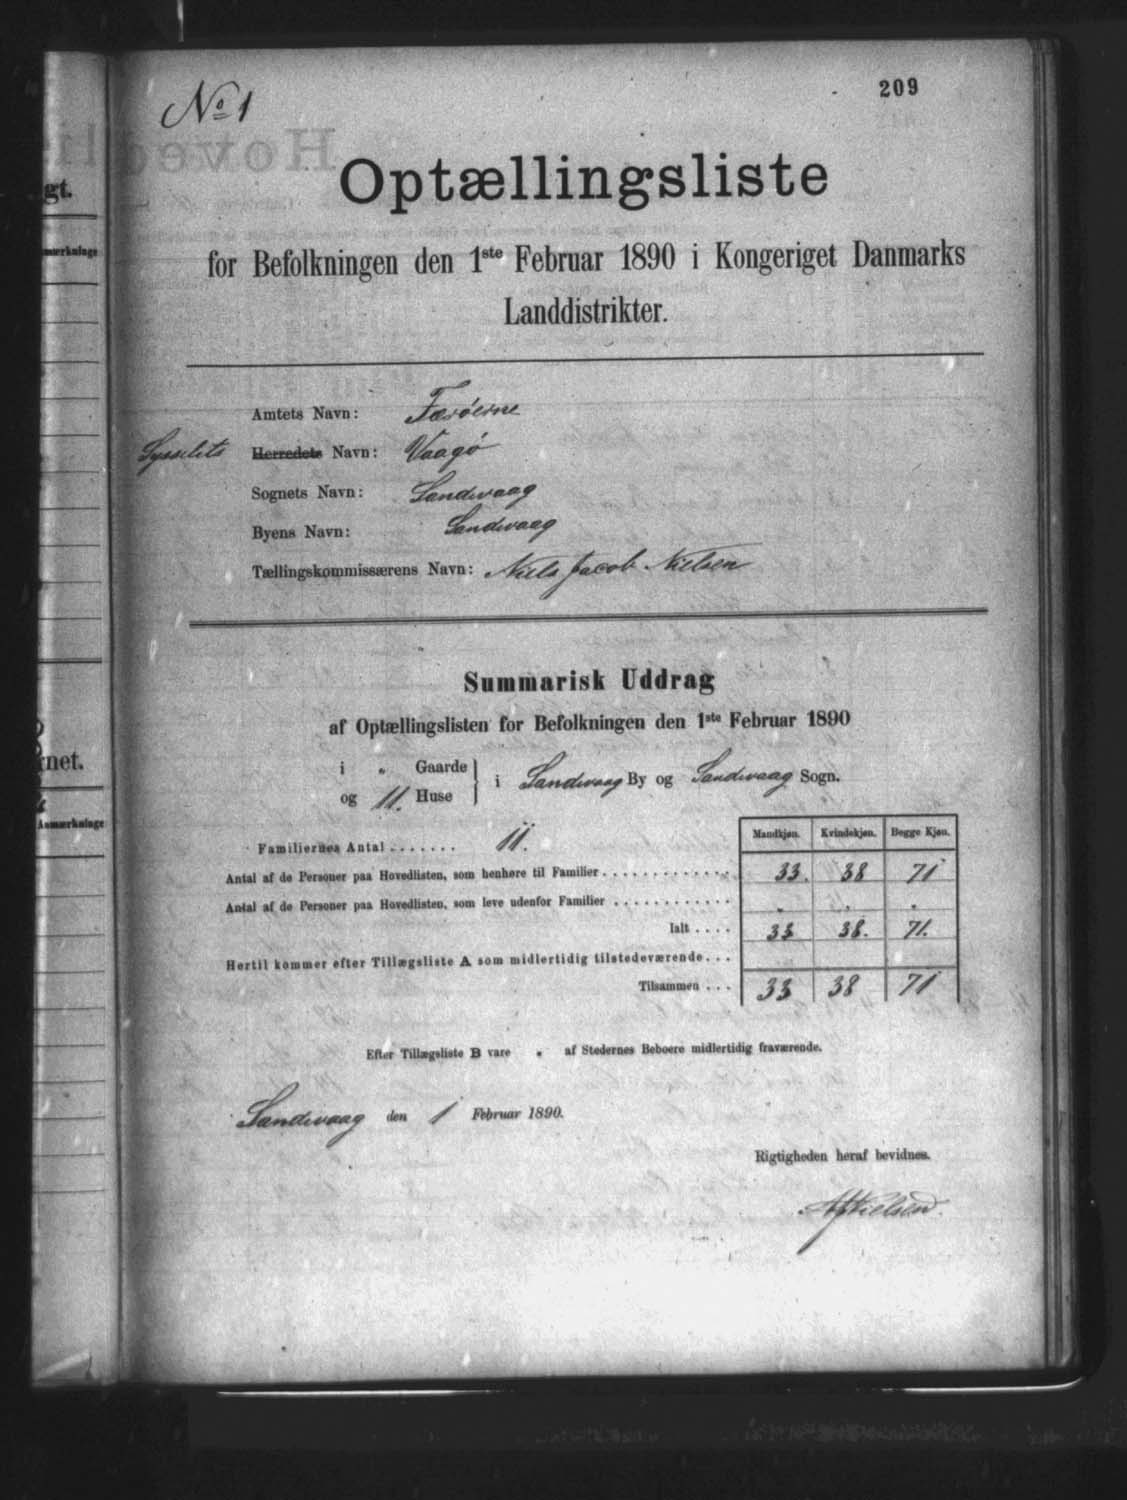 No 1
209
Optællingsliste
for Befolkningen den 1ste Februar 1890 i Kongeriget Danmarks
Landdistrikter.
Amtets Navn: Færöerne
Sysselets Herredets Navn: Vaagö
Sognets Navn: Sandevaag
Byens Navn: Sandevaag
Tællingskommissærens Navn: Niels Jacob Nielsen
Summarisk Uddrag
af Optællingslisten for Befolkningen den 1ste Februar 1890
i " Gaarde
og 11. Huse
i Sandevaag By og Sandevaag Sogn.
Mandkjøn. Kvindekjøn. Begge Kjøn.
Familiernes Antal ....... 11.
Antal af de Personer paa Hovedlisten, som henhøre til Familier ............. 33. 38 71
Antal af de Personer paa Hovedlisten, som leve udenfor Familier ............ " " "
Ialt .... 33 38. 71.
Hertil kommer efter Tillægsliste A som midlertidig tilstedeværende...
Tilsammen ... 33 38 71
Efter Tillægsliste B vare " af Stedernes Beboere midlertidig fraværende.
Sandevaag den 1 Februar 1890.
Rigtigheden heraf bevidnes.
NJNielsen.
gt.
mærkninge
rnet.
Anmærkninge